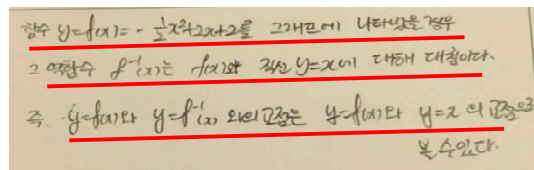 함수 y=f(x)=-½x²+2x+2를 그래프에 나타냈을 경우
그 역함수 f⁻¹(x)는 f(x)와 직선 y=x에 대해 대칭이다.
즉. y=f(x)와 y=f⁻¹(x) 와의 교점은 y=f(x)와 y=x의 교점으로
볼 수 있다.